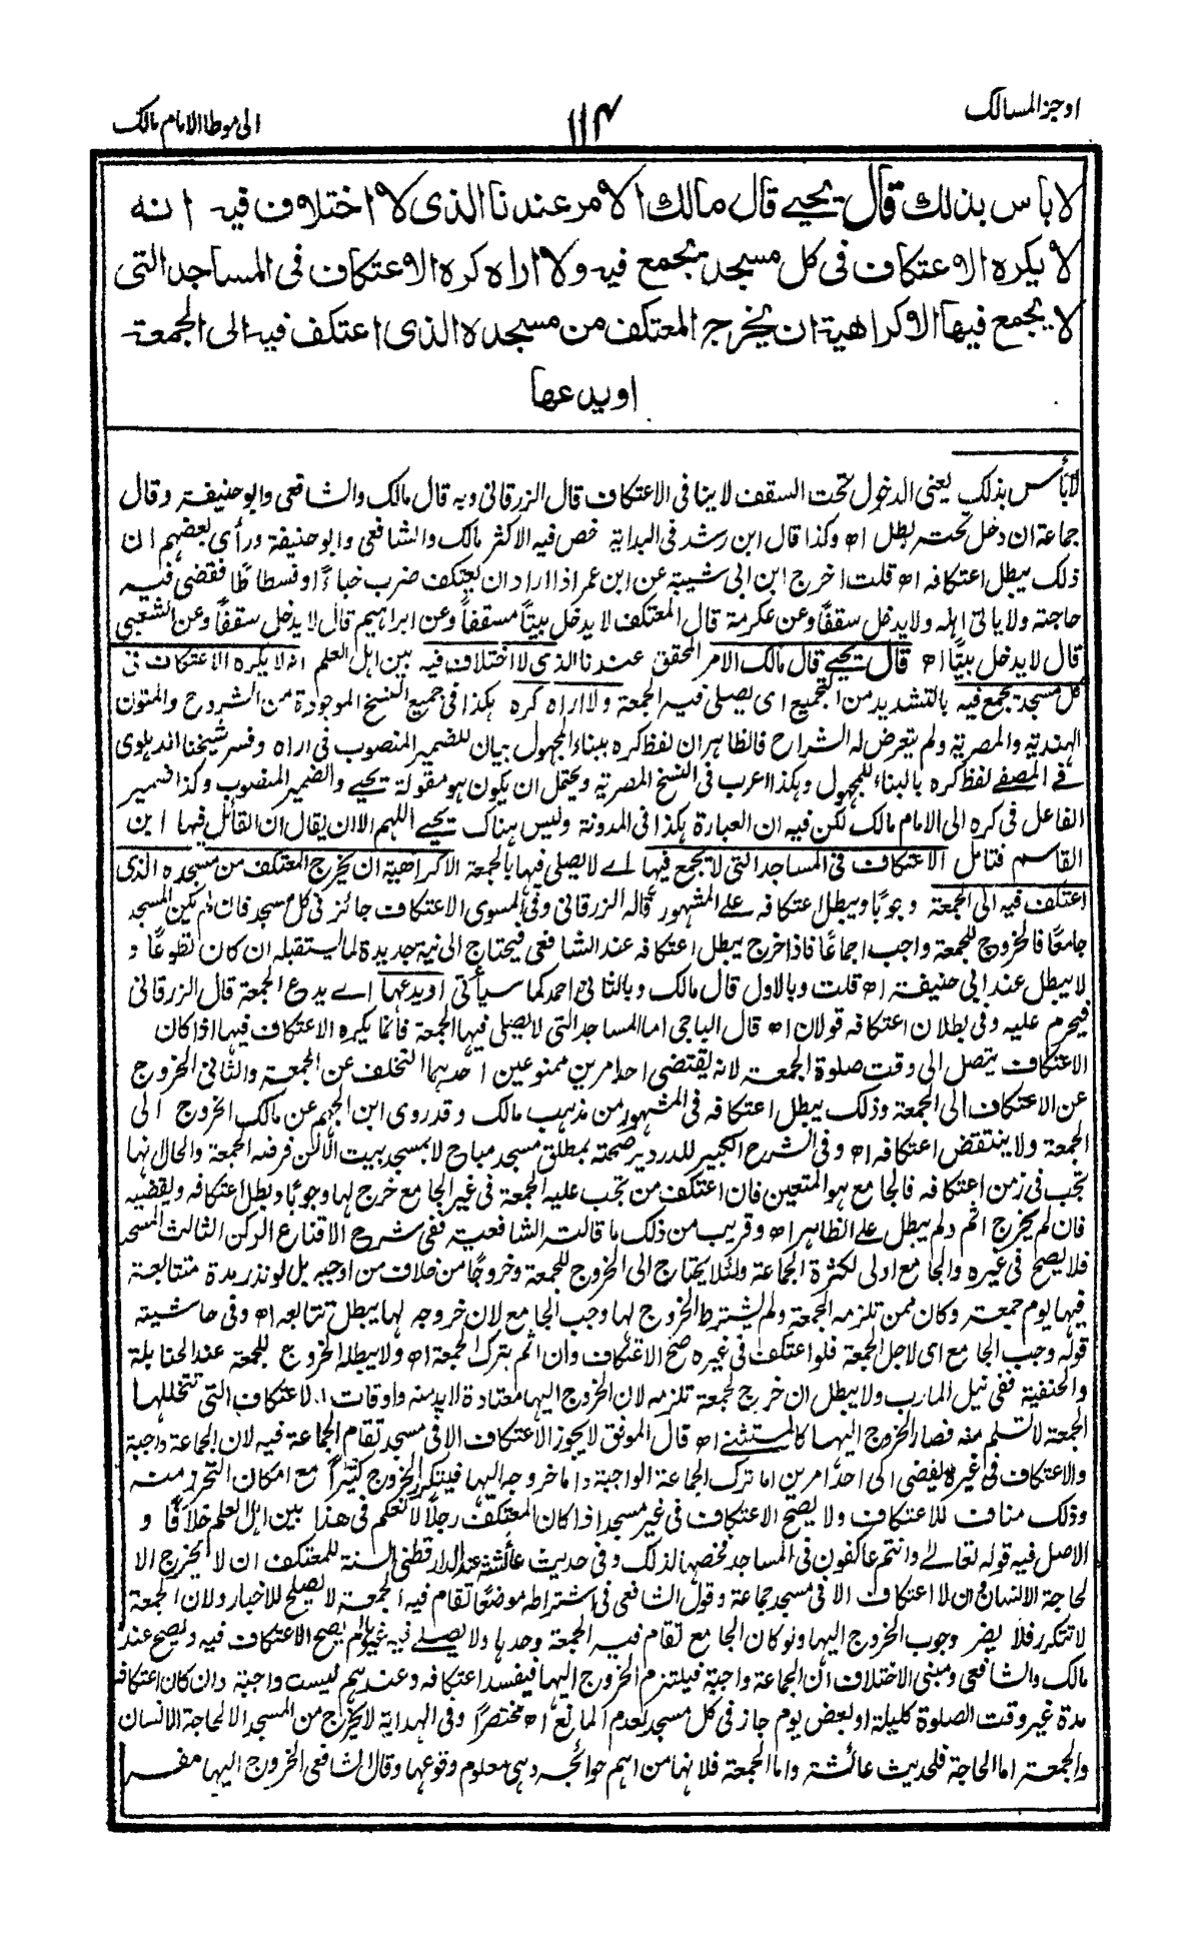 اوجز المسالك
١١٤
الى موطا الامام مالك
لا باس بذلك قال يحيى قال مالك الامر عندنا الذى لا اختلاف فيه انه
لا يكره الاعتكاف فى كل مسجد يجمع فيه ولا اراه كره الاعتكاف فى المساجد التى
لا يجمع فيها الا كراهية ان يخرج المعتكف من مسجده الذى اعتكف فيه الى الجمعة
او يدعها
لا بأس بذلك يعنى الدخول تحت السقف لا ينافى الاعتكاف قال الزرقانى وبه قال مالك والشافعى وابو حنيفة وقال
جماعة ان دخل تحته بطل اه وكذا قال ابن رشد فى البداية خص فيه الاكثر مالك والشافعى وابو حنيفة ورأى بعضهم ان
ذلك يبطل اعتكافه اه قلت اخرج ابن ابى شيبة عن ابن عمر اذا اراد ان يعتكف ضرب خباءً او فسطاطًا فقضى فيه
حاجته ولا ياتى اهله ولا يدخل سقفًا وعن عكرمة قال المعتكف لا يدخل بيتًا مسقفًا وعن ابراهيم قال لا يدخل سقفًا وعن الشعبي
قال لا يدخل بيتًا اه قال يحيى قال مالك الامر المحقق عندنا الذى لا اختلاف فيه بين اهل العلم انه لا يكره الاعتكاف فى
كل مسجد يجمع فيه بالتشديد من التجميع اى يصلى فيه الجمعة ولا اراه كره هكذا فى جميع النسخ الموجودة من الشروح والمتون
الهندية والمصرية ولم يتعرض له الشراح فالظاهر ان لفظ كره ببناء المجهول بيان للضمير المنصوب فى اراه وفسر شيخنا الدهلوى
فى المصفى لفظ كره بالبناء للمجهول وهكذا اعرب فى النسخ المصرية ويحتمل ان يكون هو مقولة يحيى والضمير المنصوب وكذا ضمير
الفاعل فى كره الى الامام مالك لكن فيه ان العبارة هكذا فى المدونة وليس هناك يحيى اللهم الا ان يقال ان القائل فيها ابن
القاسم فتامل الاعتكاف فى المساجد التى لا يجمع فيها اى لا يصلى فيها بالجمعة الا كراهية ان يخرج المعتكف من مسجده الذى
اعتكف فيه الى الجمعة وجوبًا ويبطل اعتكافه على المشهور قاله الزرقانى وفى المسوى الاعتكاف جائز فى كل مسجد فان لم يكن المسجد
جامعًا فالخروج للجمعة واجب اجماعًا فاذا خرج يبطل اعتكافه عند الشافعى فيحتاج الى نية جديدة لما يستقبله ان كان تطوعًا و
لا يبطل عند ابى حنيفة اه قلت وبالاول قال مالك وبالثانى احمد كما سيأتى او يدعها اى يدع الجمعة قال الزرقانى
فيحرم عليه وفى بطلان اعتكافه قولان اه قال الباجى اما المساجد التى لا يصلى فيها الجمعة فانما يكره الاعتكاف فيها اذا كان
الاعتكاف يتصل الى وقت صلوة الجمعة لانه يقتضى احد امرين ممنوعين احدهما التخلف عن الجمعة والثانى الخروج
عن الاعتكاف الى الجمعة وذلك يبطل اعتكافه فى المشهور من مذهب مالك وقد روى ابن الجهم عن مالك الخروج الى
الجمعة ولا ينتقض اعتكافه اه وفى الشرح الكبير للدردير صحته بمطلق مسجد مباح لا بمسجد بيت الا لمن فرضه الجمعة والحال انها
تجب فى زمن اعتكافه فالجامع هو المتعين فان اعتكف من تجب عليه الجمعة فى غير الجامع خرج لها وجوبًا وبطل اعتكافه ويقضيه
فان لم يخرج اثم ولم يبطل على الظاهر اه وقريب من ذلك ما قالت الشافعية ففى شرح الاقناع الركن الثالث المسجد
فلا يصح فى غيره والجامع اولى لكثرة الجماعة ولئلا يحتاج الى الخروج للجمعة وخروجًا من خلاف من اوجبه بل لو نذر مدة متتابعة
فيها يوم جمعة وكان ممن تلزمه الجمعة ولم يشترط الخروج لها وجب الجامع لان خروجه لها يبطل تتابعه اه وفى حاشيته
قوله وجب الجامع اى لاجل الجمعة فلو اعتكف فى غيره صح الاعتكاف وان اثم بترك الجمعة اه ولا يبطله الخروج للجمعة عند الحنابلة
والحنفية ففى نيل المارب ولا يبطل ان خرج لجمعة تلزمه لان الخروج اليها معتادة لا بد منه واوقات الاعتكاف التى تتخللها
الجمعة لا تسلم منه فصار الخروج اليها كالمستثنى اه قال الموفق لا يجوز الاعتكاف الا فى مسجد تقام الجماعة فيه لان الجماعة واجبة
والاعتكاف فى غيره يفضى الى احد امرين اما ترك الجماعة الواجبة واما خروجه اليها فيتكرر الخروج كثيرًا مع امكان التحرز منه
وذلك مناف للاعتكاف ولا يصح الاعتكاف فى غير مسجد اذا كان المعتكف رجلًا لا نعلم فى هذا بين اهل العلم خلافًا و
الاصل فيه قوله تعالى وانتم عاكفون فى المساجد فخصها لذلك وفى حديث عائشة عند الدارقطنى السنة للمعتكف ان لا يخرج الا
لحاجة الانسان وان لا اعتكاف الا فى مسجد جماعة وقول الشافعى فى اشتراطه موضعًا تقام فيه الجمعة لا يصلح للاخبار ولان الجمعة
لا تتكرر فلا يضر وجوب الخروج اليها ولو كان الجامع تقام فيه الجمعة وحدها ولا يصلى فيه غيرها لم يصح الاعتكاف فيه ويصح عند
مالك والشافعى ومبنى الاختلاف ان الجماعة واجبة فيلتزم الخروج اليها فيفسد اعتكافه وعندهم ليست واجبة وان كان اعتكافه
مدة غير وقت الصلوة كليلة او بعض يوم جاز فى كل مسجد لعدم المانع اه مختصرًا وفى الهداية لا يخرج من المسجد الا لحاجة الانسان
والجمعة اما الحاجة فلحديث عائشة واما الجمعة فلانها من اهم حوائجه وهى معلوم وقوعها وقال الشافعى الخروج اليها مفسد